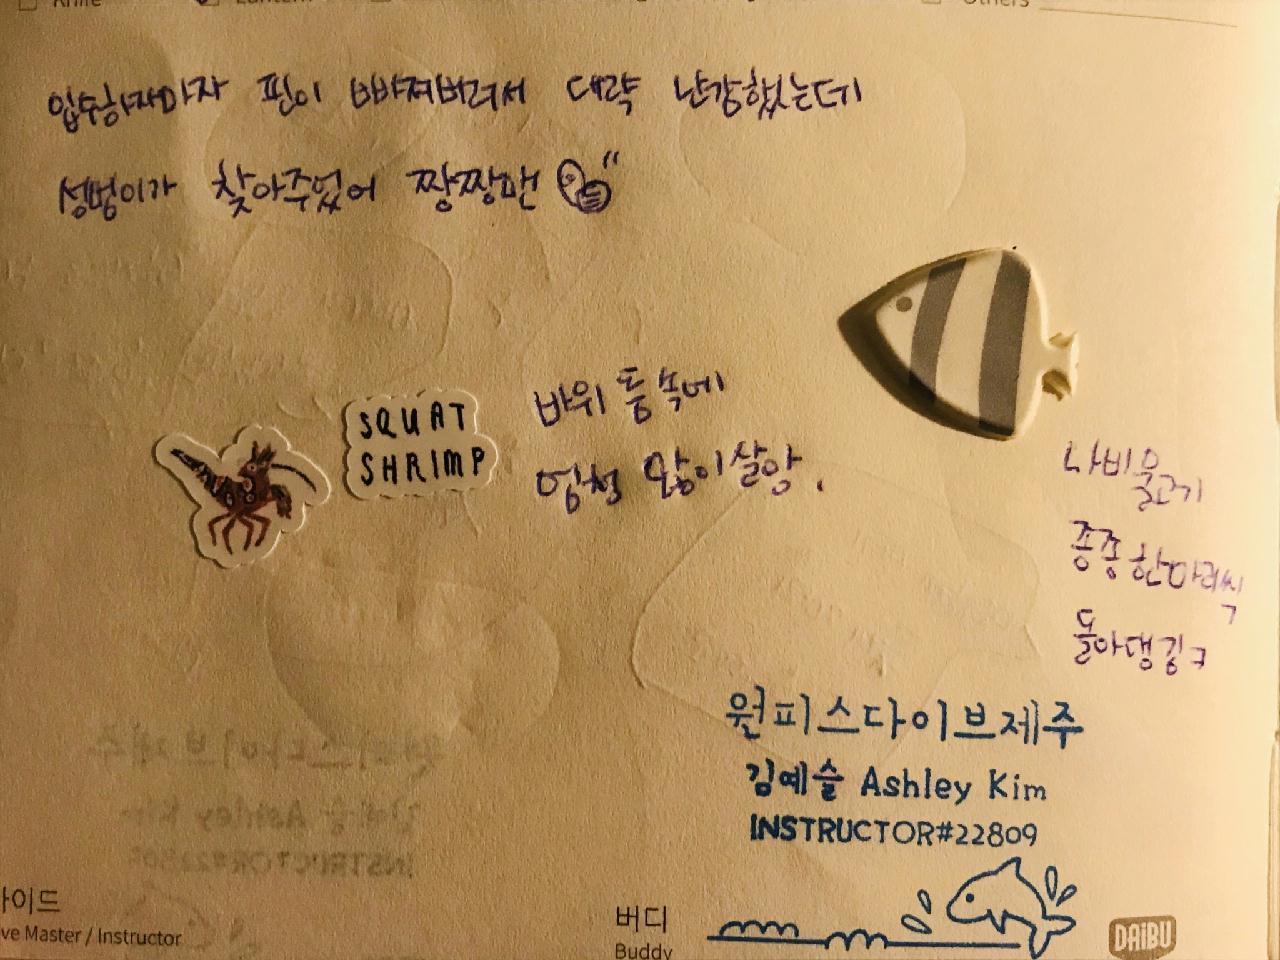 입수하자마자 핀이 빠져버려서 대략 난감했는데
성멍이가 찾아주었어 짱짱맨
SQUAT
SHRIMP
바위 틈 속에
엄청 많이 살앙.
나비물고기
종종 한마리씩
돌아댕김ㅋ
원피스다이브제주
김예슬 Ashley Kim
INSTRUCTOR#22809
이드
ve Master / Instructor
버디
Buddy
DAiBU